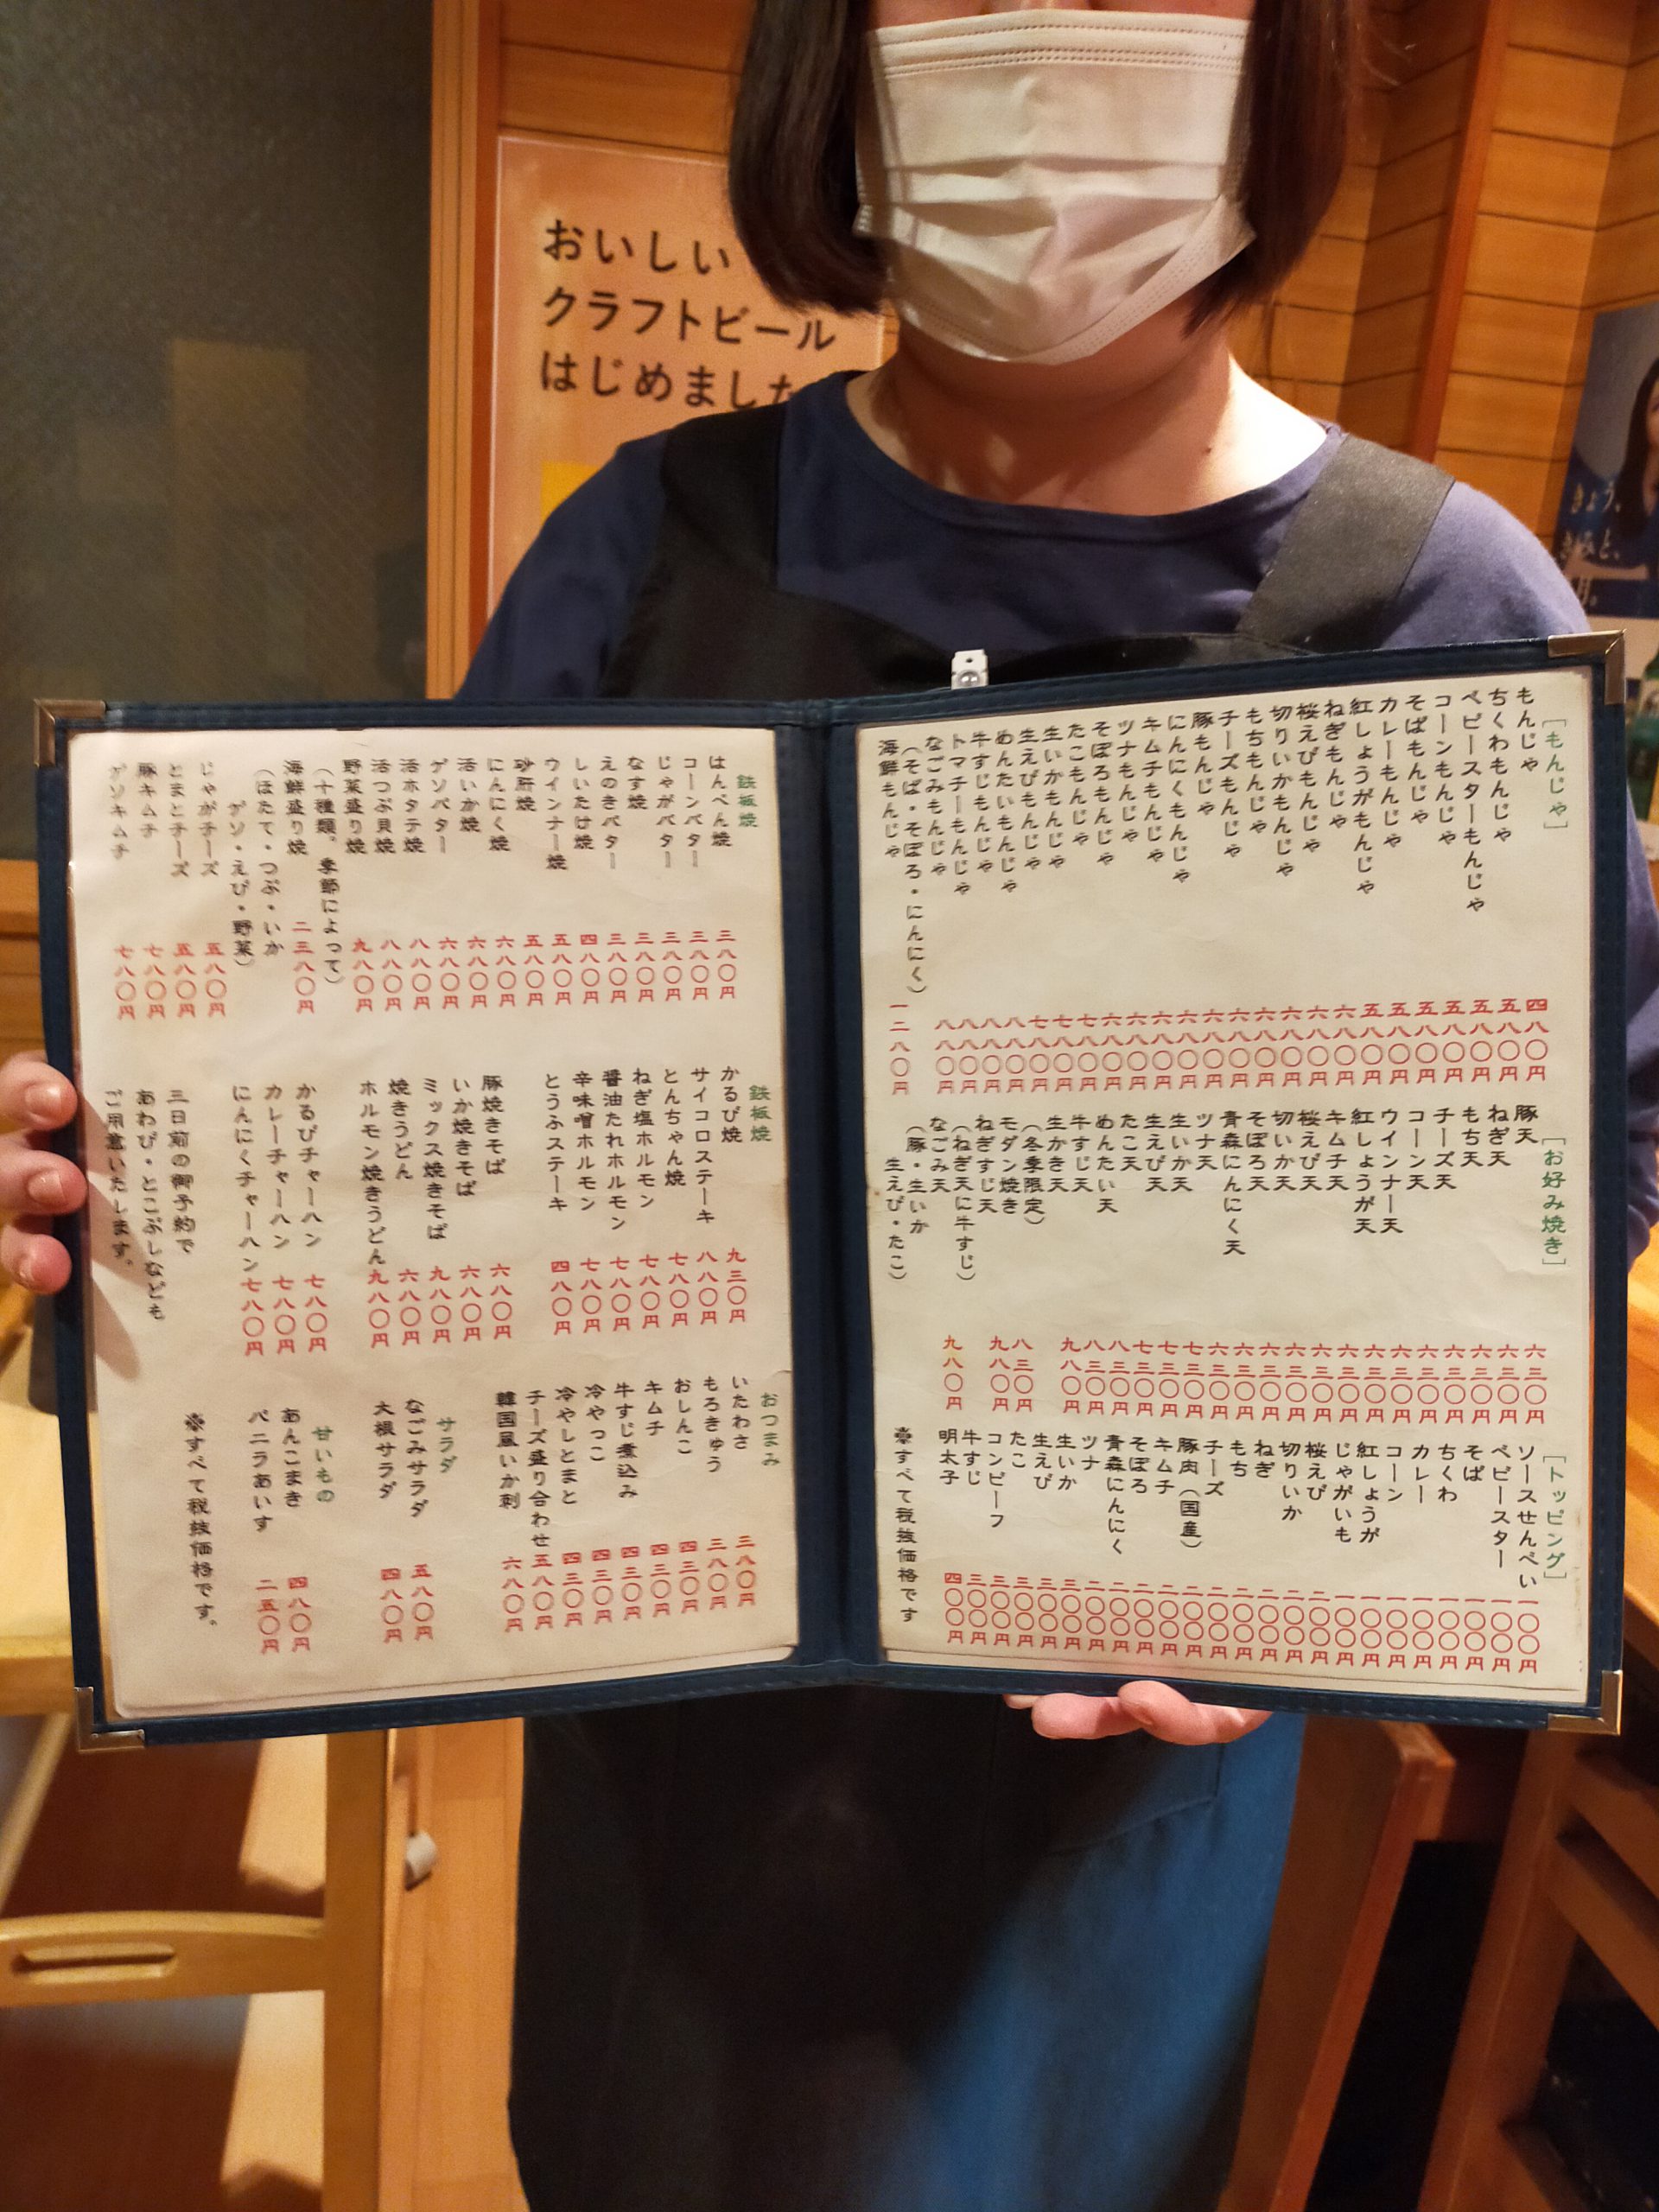 おいしい
クラフトビール
はじめました
きょう、
きみと、
[もんじゃ]
もんじゃ 四八〇円
ちくわもんじゃ 五八〇円
ベビースターもんじゃ 五八〇円
コーンもんじゃ 五八〇円
そばもんじゃ 五八〇円
カレーもんじゃ 五八〇円
紅しょうがもんじゃ 五八〇円
ねぎもんじゃ 六八〇円
桜えびもんじゃ 六八〇円
切りいかもんじゃ 六八〇円
もちもんじゃ 六八〇円
チーズもんじゃ 六八〇円
豚もんじゃ 六八〇円
にんにくもんじゃ 六八〇円
キムチもんじゃ 六八〇円
ツナもんじゃ 六八〇円
そぼろもんじゃ 六八〇円
たこもんじゃ 七八〇円
生いかもんじゃ 七八〇円
生えびもんじゃ 七八〇円
めんたいもんじゃ 八八〇円
牛すじもんじゃ 八八〇円
トマチーもんじゃ 八八〇円
なごみもんじゃ 八八〇円
(そば・そぼろ・にんにく)
海鮮もんじゃ 一二八〇円
[お好み焼き]
豚天 六三〇円
ねぎ天 六三〇円
もち天 六三〇円
チーズ天 六三〇円
コーン天 六三〇円
ウインナー天 六三〇円
紅しょうが天 六三〇円
キムチ天 六三〇円
桜えび天 六三〇円
切いか天 六三〇円
そぼろ天 六三〇円
青森にんにく天 六三〇円
ツナ天 六三〇円
生いか天 七三〇円
生えび天 七三〇円
たこ天 七三〇円
めんたい天 八三〇円
牛すじ天 八三〇円
生かき天 九八〇円
(冬季限定)
モダン焼き 八三〇円
ねぎすじ天 九八〇円
(ねぎ天に牛すじ)
なごみ天 九八〇円
(豚・生いか
生えび・たこ)
[トッピング]
ソースせんべい 一〇〇円
ベビースター 一〇〇円
そば 一〇〇円
ちくわ 一〇〇円
カレー 一〇〇円
コーン 一〇〇円
紅しょうが 一〇〇円
じゃがいも 一〇〇円
桜えび 二〇〇円
切りいか 二〇〇円
ねぎ 二〇〇円
もち 二〇〇円
チーズ 二〇〇円
豚肉(国産) 二〇〇円
キムチ 二〇〇円
そぼろ 二〇〇円
青森にんにく 二〇〇円
ツナ 二〇〇円
生いか 三〇〇円
生えび 三〇〇円
たこ 三〇〇円
コンビーフ 三〇〇円
牛すじ 三〇〇円
明太子 四〇〇円
※すべて税抜価格です
鉄板焼
はんぺん焼 三八〇円
コーンバター 三八〇円
じゃがバター 三八〇円
なす焼 三八〇円
えのきバター 三八〇円
しいたけ焼 四八〇円
ウインナー焼 五八〇円
砂肝焼 五八〇円
にんにく焼 六八〇円
活いか焼 六八〇円
ゲソバター 六八〇円
活ホタテ焼 八八〇円
活つぶ貝焼 八八〇円
野菜盛り焼 九八〇円
(十種類。季節によって)
海鮮盛り焼 二三八〇円
(ほたて・つぶ・いか
ゲソ・えび・野菜)
じゃがチーズ 五八〇円
とまとチーズ 五八〇円
豚キムチ 七八〇円
ゲソキムチ 七八〇円
鉄板焼
かるび焼 九三〇円
サイコロステーキ 八八〇円
とんちゃん焼 七八〇円
ねぎ塩ホルモン 七八〇円
醤油たれホルモン 七八〇円
辛味噌ホルモン 七八〇円
とうふステーキ 四八〇円
豚焼きそば 六八〇円
いか焼きそば 六八〇円
ミックス焼きそば 九八〇円
焼きうどん 六八〇円
ホルモン焼きうどん 九八〇円
かるびチャーハン 七八〇円
カレーチャーハン 七八〇円
にんにくチャーハン 七八〇円
三日前の御予約で
あわび・とこぶしなども
ご用意いたします。
おつまみ
いたわさ 三八〇円
もろきゅう 三八〇円
おしんこ 四三〇円
キムチ 四三〇円
牛すじ煮込み 四三〇円
冷やっこ 四三〇円
冷やしとまと 四三〇円
チーズ盛り合わせ 五八〇円
韓国風いか刺 六八〇円
サラダ
なごみサラダ 五八〇円
大根サラダ 四八〇円
甘いもの
あんこまき 四八〇円
バニラあいす 二五〇円
※すべて税抜価格です。